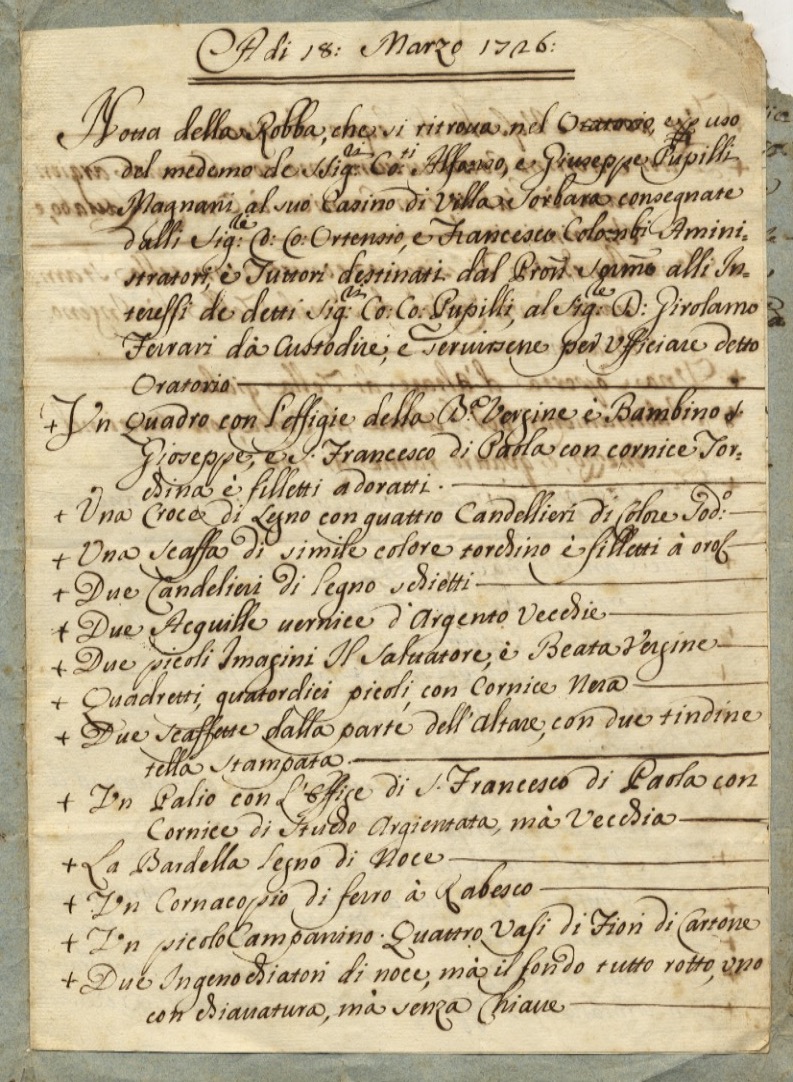 A di 18: Marzo 1726:
Notta della Robba, che si ritroua nel Oratorio, e per uso
del medemo de Sig:ri Co:ti Alfonso, e Giuseppe Pupilli
Magnani al suo Casino di Villa Sorbara consegnate
dalli Sig:re D: Co: Ortensio, e Francesco Colombi Amini=
stratori, è Tuttori destinati dal Pron̄ Serm̄o alli In=
teressi de detti Sig:ri Co: Co: Pupilli, al Sig:re D: Girolamo
Ferrari dà Custodire, e Seruirsene per Vfficiare detto
Oratorio
+ Vn Quadro con l'effigie della B:a Vergine è Bambino S:
Gioseppe, e S: Francesco di Paola con cornice Tor=
china è filletti adoratti.
+ Una Croce di Legno con quattro Candellieri di Colore Sod:o
+ Una scaffa di simile colore torchino è filletti à oro
+ Due Candelieri di legno schietti
+ Due Acquille uernice d'Argento Vecchie
+ Due picoli Imagini Il Saluatore, è Beata Vergine
+ Quadretti, quatordici picoli, con Cornice Nera
+ Due scaffette dalla parte dell'Altare, con due tindine
tella stampata
+ Vn Palio con L'Effige di S: Francesco di Paola con
Cornice di Stucho Argientata, mà Vecchia
+ La Bardella Legno di Noce
+ Vn Cornacopio di ferro à Rabesco
+ Vn picolo Campanino. Quattro Vasi di Fiori di Cartone
+ Due Ingenochiatori di noce, mà il fondo tutto rotto, uno
con chiauatura, mà senza Chiaue